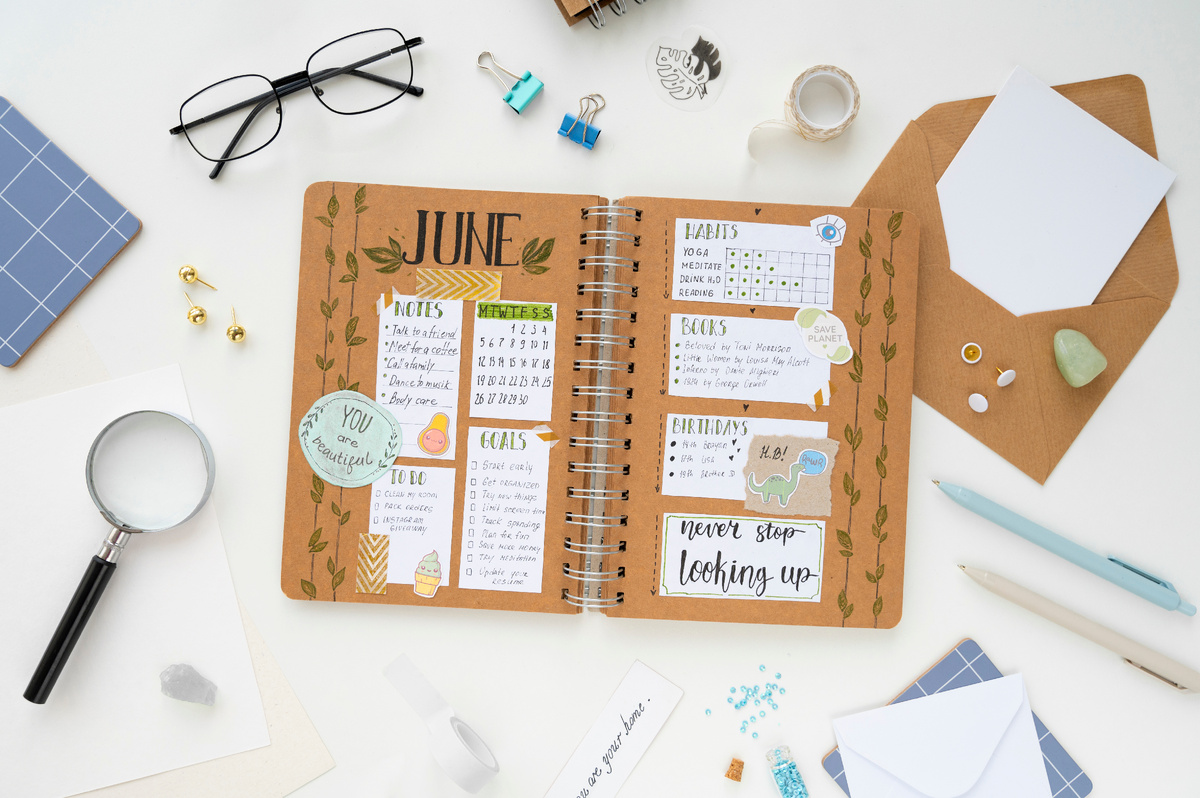 JUNE
NOTES
Talk to a friend
Meet for a coffee
Call a family
Dance to musik
Body care
M T W T F S S
1 2 3 4
5 6 7 8 9 10 11
12 13 14 15 16 17 18
19 20 21 22 23 24 25
26 27 28 29 30
YOU
are
beautiful
TO DO
CLEAN MY ROOM
PACK ORDERS
INSTAGRAM
GIVEAWAY
GOALS
Start early
Get organized
Try new things
Limit screen time
Track spending
Plan for fun
Save more money
Try meditation
Update your
resume
HABITS
YOGA
MEDITATE
DRINK H2O
READING
BOOKS
Beloved by Toni Morrison
Little Women by Louisa May Alcott
Inferno by Dante Alighieri
1984 by George Orwell
SAVE
PLANET
BIRTHDAYS
Brayan
Lisa
19th Brother :D
H.B!
RAWR
never stop
looking up
are your home.